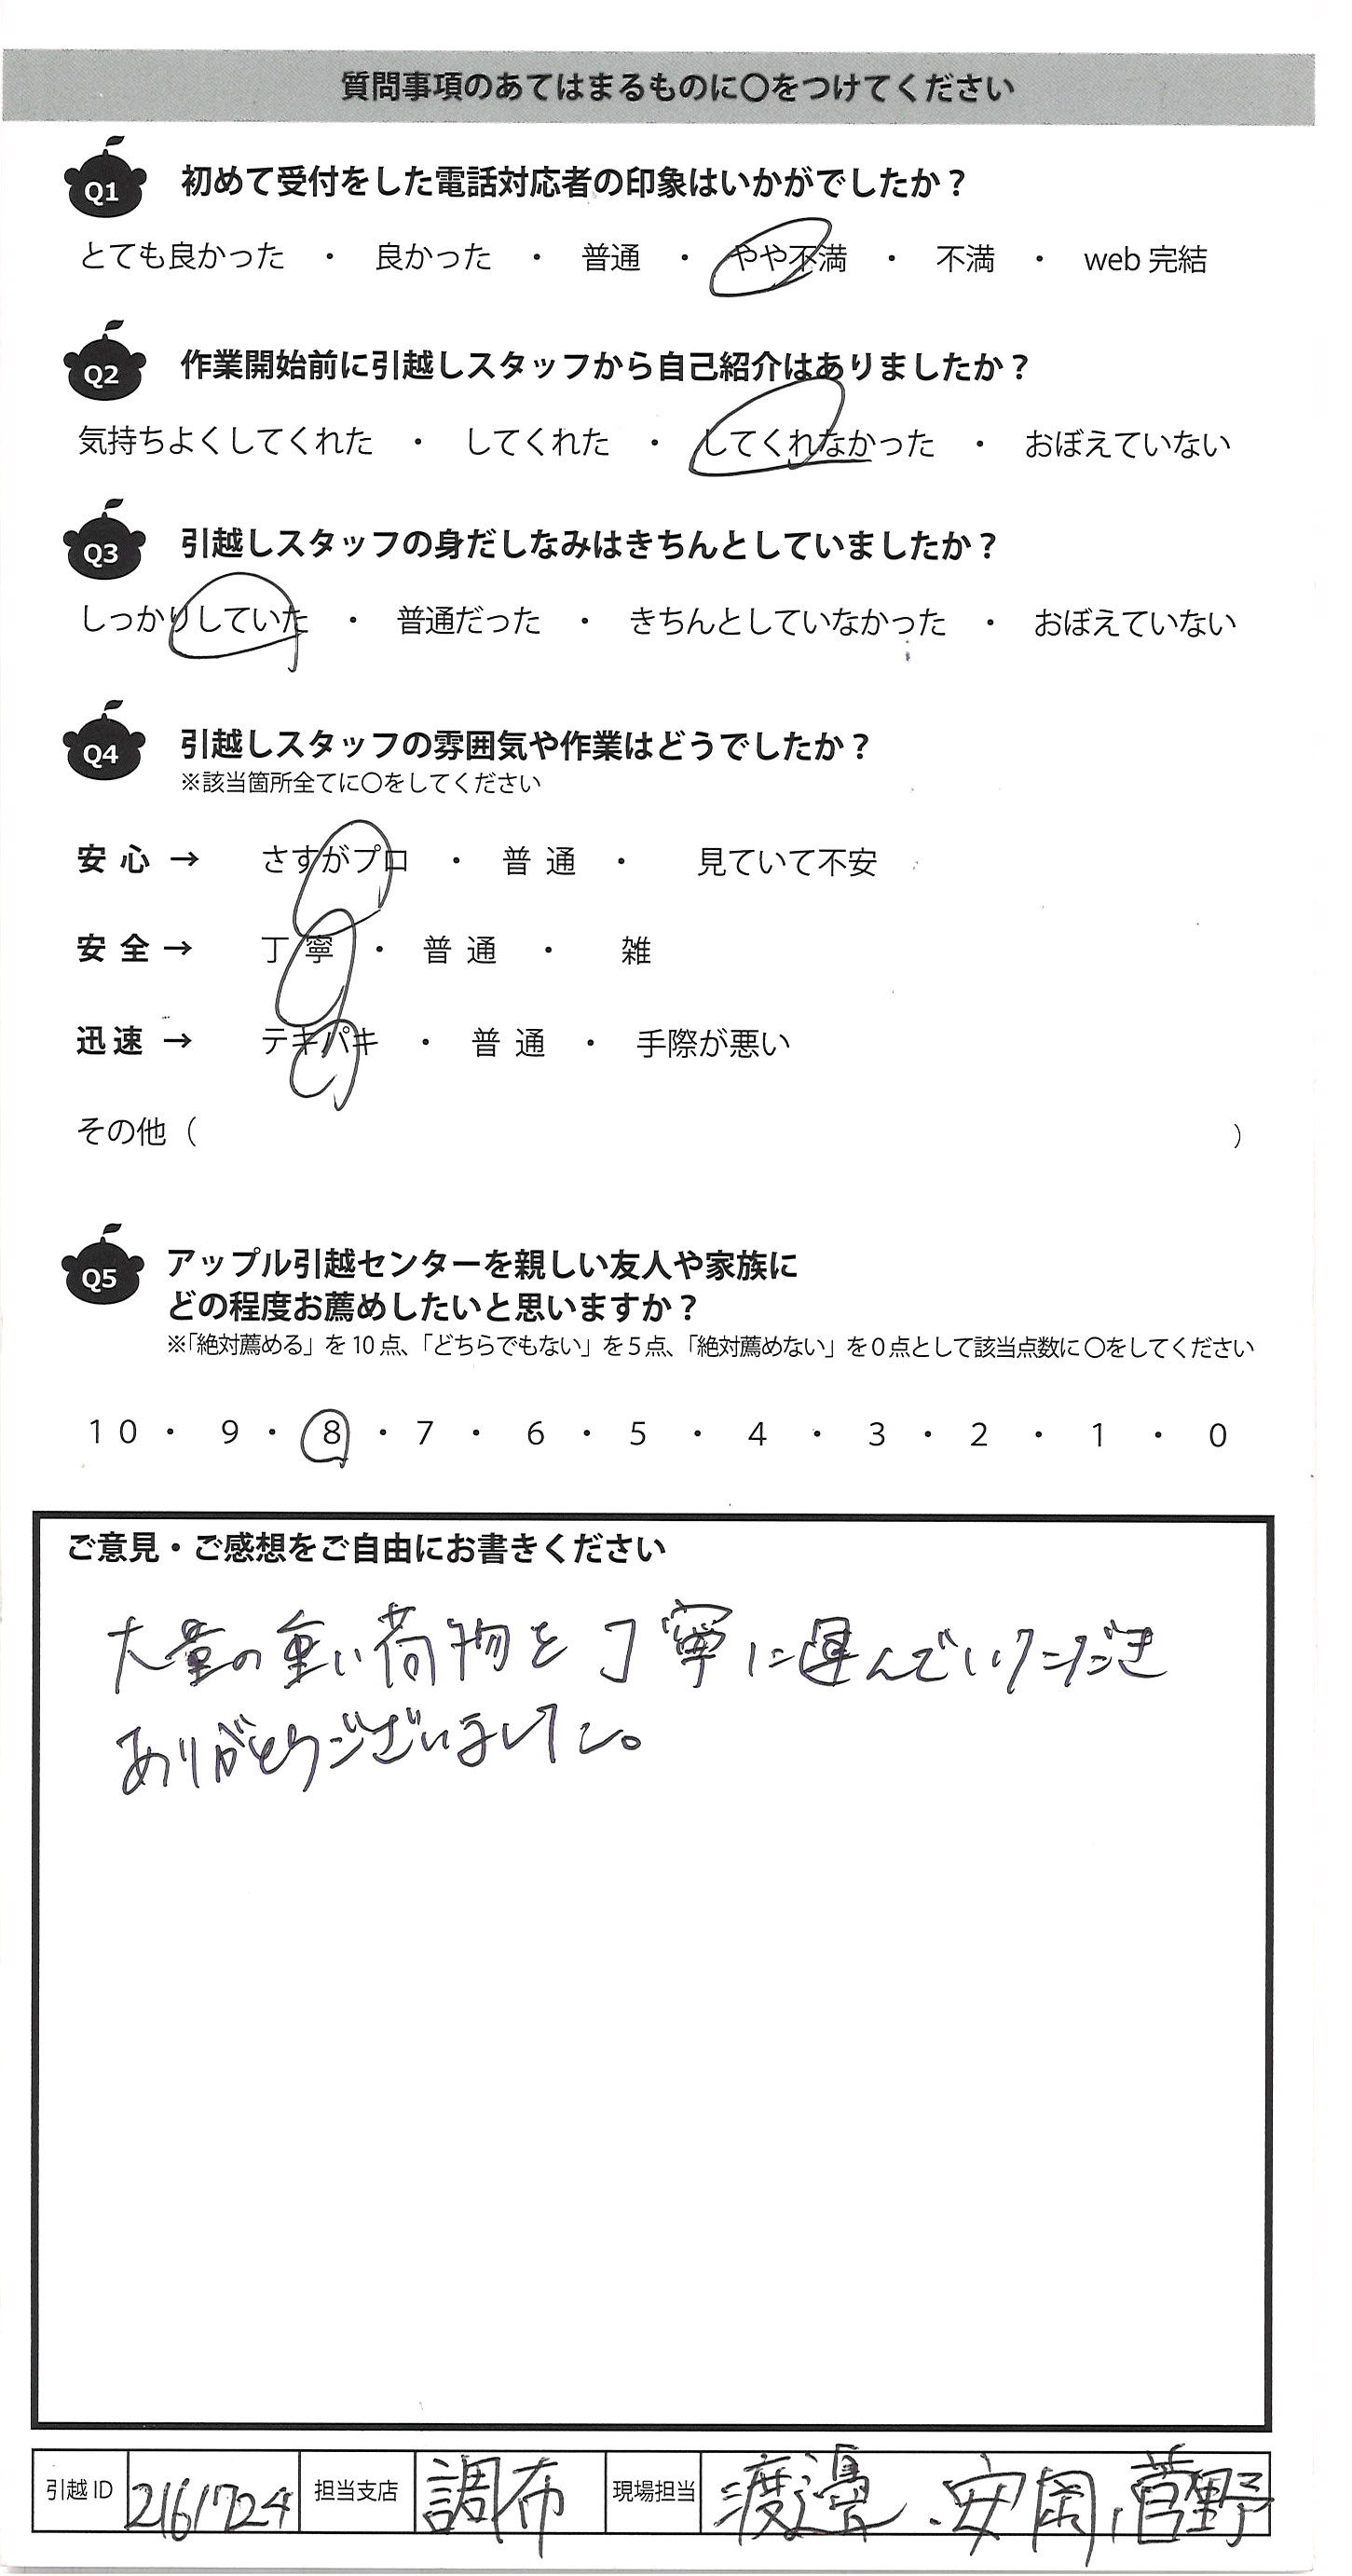 質問事項のあてはまるものに〇をつけてください
Q1 初めて受付をした電話対応者の印象はいかがでしたか？
とても良かった ・ 良かった ・ 普通 ・ やや不満 ・ 不満 ・ web 完結
Q2 作業開始前に引越しスタッフから自己紹介はありましたか？
気持ちよくしてくれた ・ してくれた ・ してくれなかった ・ おぼえていない
Q3 引越しスタッフの身だしなみはきちんとしていましたか？
しっかりしていた ・ 普通だった ・ きちんとしていなかった ・ おぼえていない
Q4 引越しスタッフの雰囲気や作業はどうでしたか？
※該当箇所全てに〇をしてください
安心 → さすがプロ ・ 普通 ・ 見ていて不安
安全 → 丁寧 ・ 普通 ・ 雑
迅速 → テキパキ ・ 普通 ・ 手際が悪い
その他（ ）
Q5 アップル引越センターを親しい友人や家族に
どの程度お薦めしたいと思いますか？
※「絶対薦める」を10点、「どちらでもない」を5点、「絶対薦めない」を0点として該当点数に〇をしてください
10 ・ 9 ・ 8 ・ 7 ・ 6 ・ 5 ・ 4 ・ 3 ・ 2 ・ 1 ・ 0
ご意見・ご感想をご自由にお書きください
大量の重い荷物を丁寧に運んでいただき
ありがとうございました。
引越ID 2161724 担当支店 調布 現場担当 渡邊、安岡、菅野